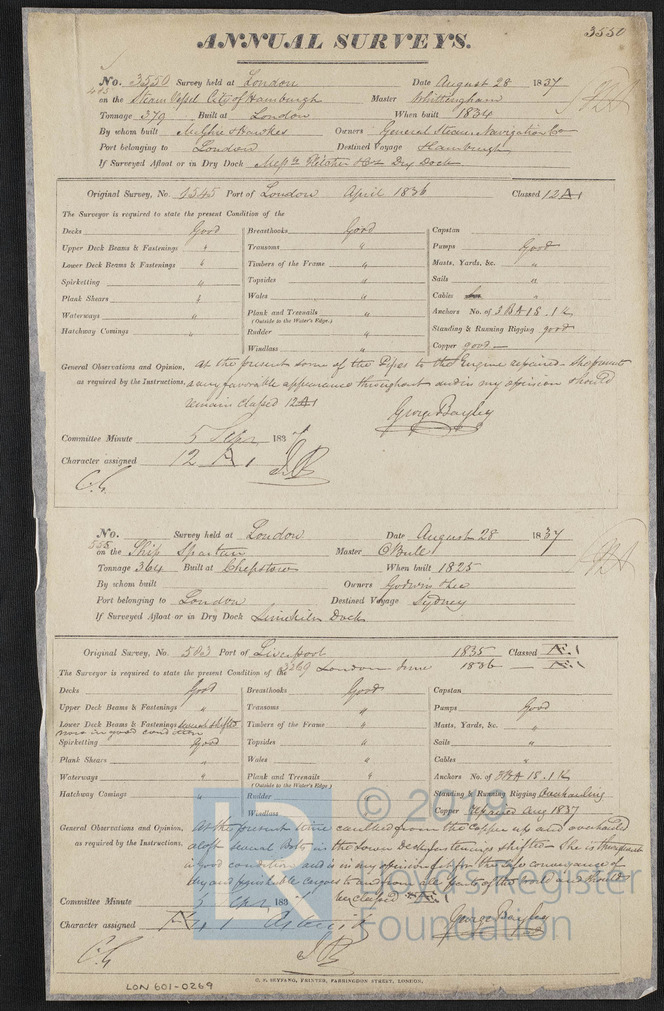 3550
ANNUAL SURVEYS.
No. 3550 Survey held at London Date August 28 1837
on the Steam Vessel City of Hamburgh Master Whittingham
Tonnage 379 Built at London When built 1834
By whom built Owners General Steam Navigation Co
Port belonging to London Destined Voyage Hamburgh
If Surveyed Afloat or in Dry Dock Messrs Fletcher & Co Dry Dock
Original Survey, No. 1545 Port of London April 1836 Classed 12 A 1
The Surveyor is required to state the present Condition of the
Decks Good Breasthooks Good Capstan
Upper Deck Beams & Fastenings " Transoms " Pumps Good
Lower Deck Beams & Fastenings " Timbers of the Frame " Masts, Yards, &c. "
Spirketting " Topsides " Sails "
Plank Shears " Wales " Cables "
Waterways " Plank and Treenails " Anchors No. of 3 BA 1S. 1K
(Outside to the Water's Edge.)
Hatchway Comings " Rudder " Standing & Running Rigging good
Windlass " Copper good
General Observations and Opinion, At the present some of the Pipes to the Engine repaired - She presents
as required by the Instructions, a very favorable appearance throughout and in my opinion should
remain classed 12 A 1
George Bayley
Committee Minute 5 Sepr 1837
Character assigned 12 A 1
No. 555 Survey held at London Date August 28 1837
on the Ship Spartan Master
Tonnage 364 Built at Chepstow When built 1825
By whom built Owners Godwin & Lee
Port belonging to London Destined Voyage Sydney
If Surveyed Afloat or in Dry Dock Limekiln Dock
Original Survey, No. 503 Port of Liverpool 1835 Classed Æ 1
The Surveyor is required to state the present Condition of the 3269 London June 1836 — Æ 1
Decks Good Breasthooks Good Capstan
Upper Deck Beams & Fastenings " Transoms " Pumps Good
Lower Deck Beams & Fastenings several shifted Timbers of the Frame " Masts, Yards, &c. "
now in good condition
Spirketting Good Topsides " Sails "
Plank Shears " Wales " Cables "
Waterways " Plank and Treenails " Anchors No. of 3 BA 1S. 1K
(Outside to the Water's Edge.)
Hatchway Comings " Rudder Standing & Running Rigging Overhauling
Windlass Copper repaired Aug 1837
General Observations and Opinion, At the present time caulked from the Copper up and overhauled
as required by the Instructions. aloft several Bolts in the Lower Deck fastenings shifted - She is throughout
in good condition and is in my opinion fit for the safe conveyance of
dry and perishable cargoes to and from all parts of the world and should
be classed Æ 1
George Bayley
Committee Minute 5 Sepr 1837
Character assigned Æ 1
C. F. SEYFANG, PRINTER, FARRINGDON STREET, LONDON.
LON 601-0269
LR © 2019
Lloyd's Register
Foundation